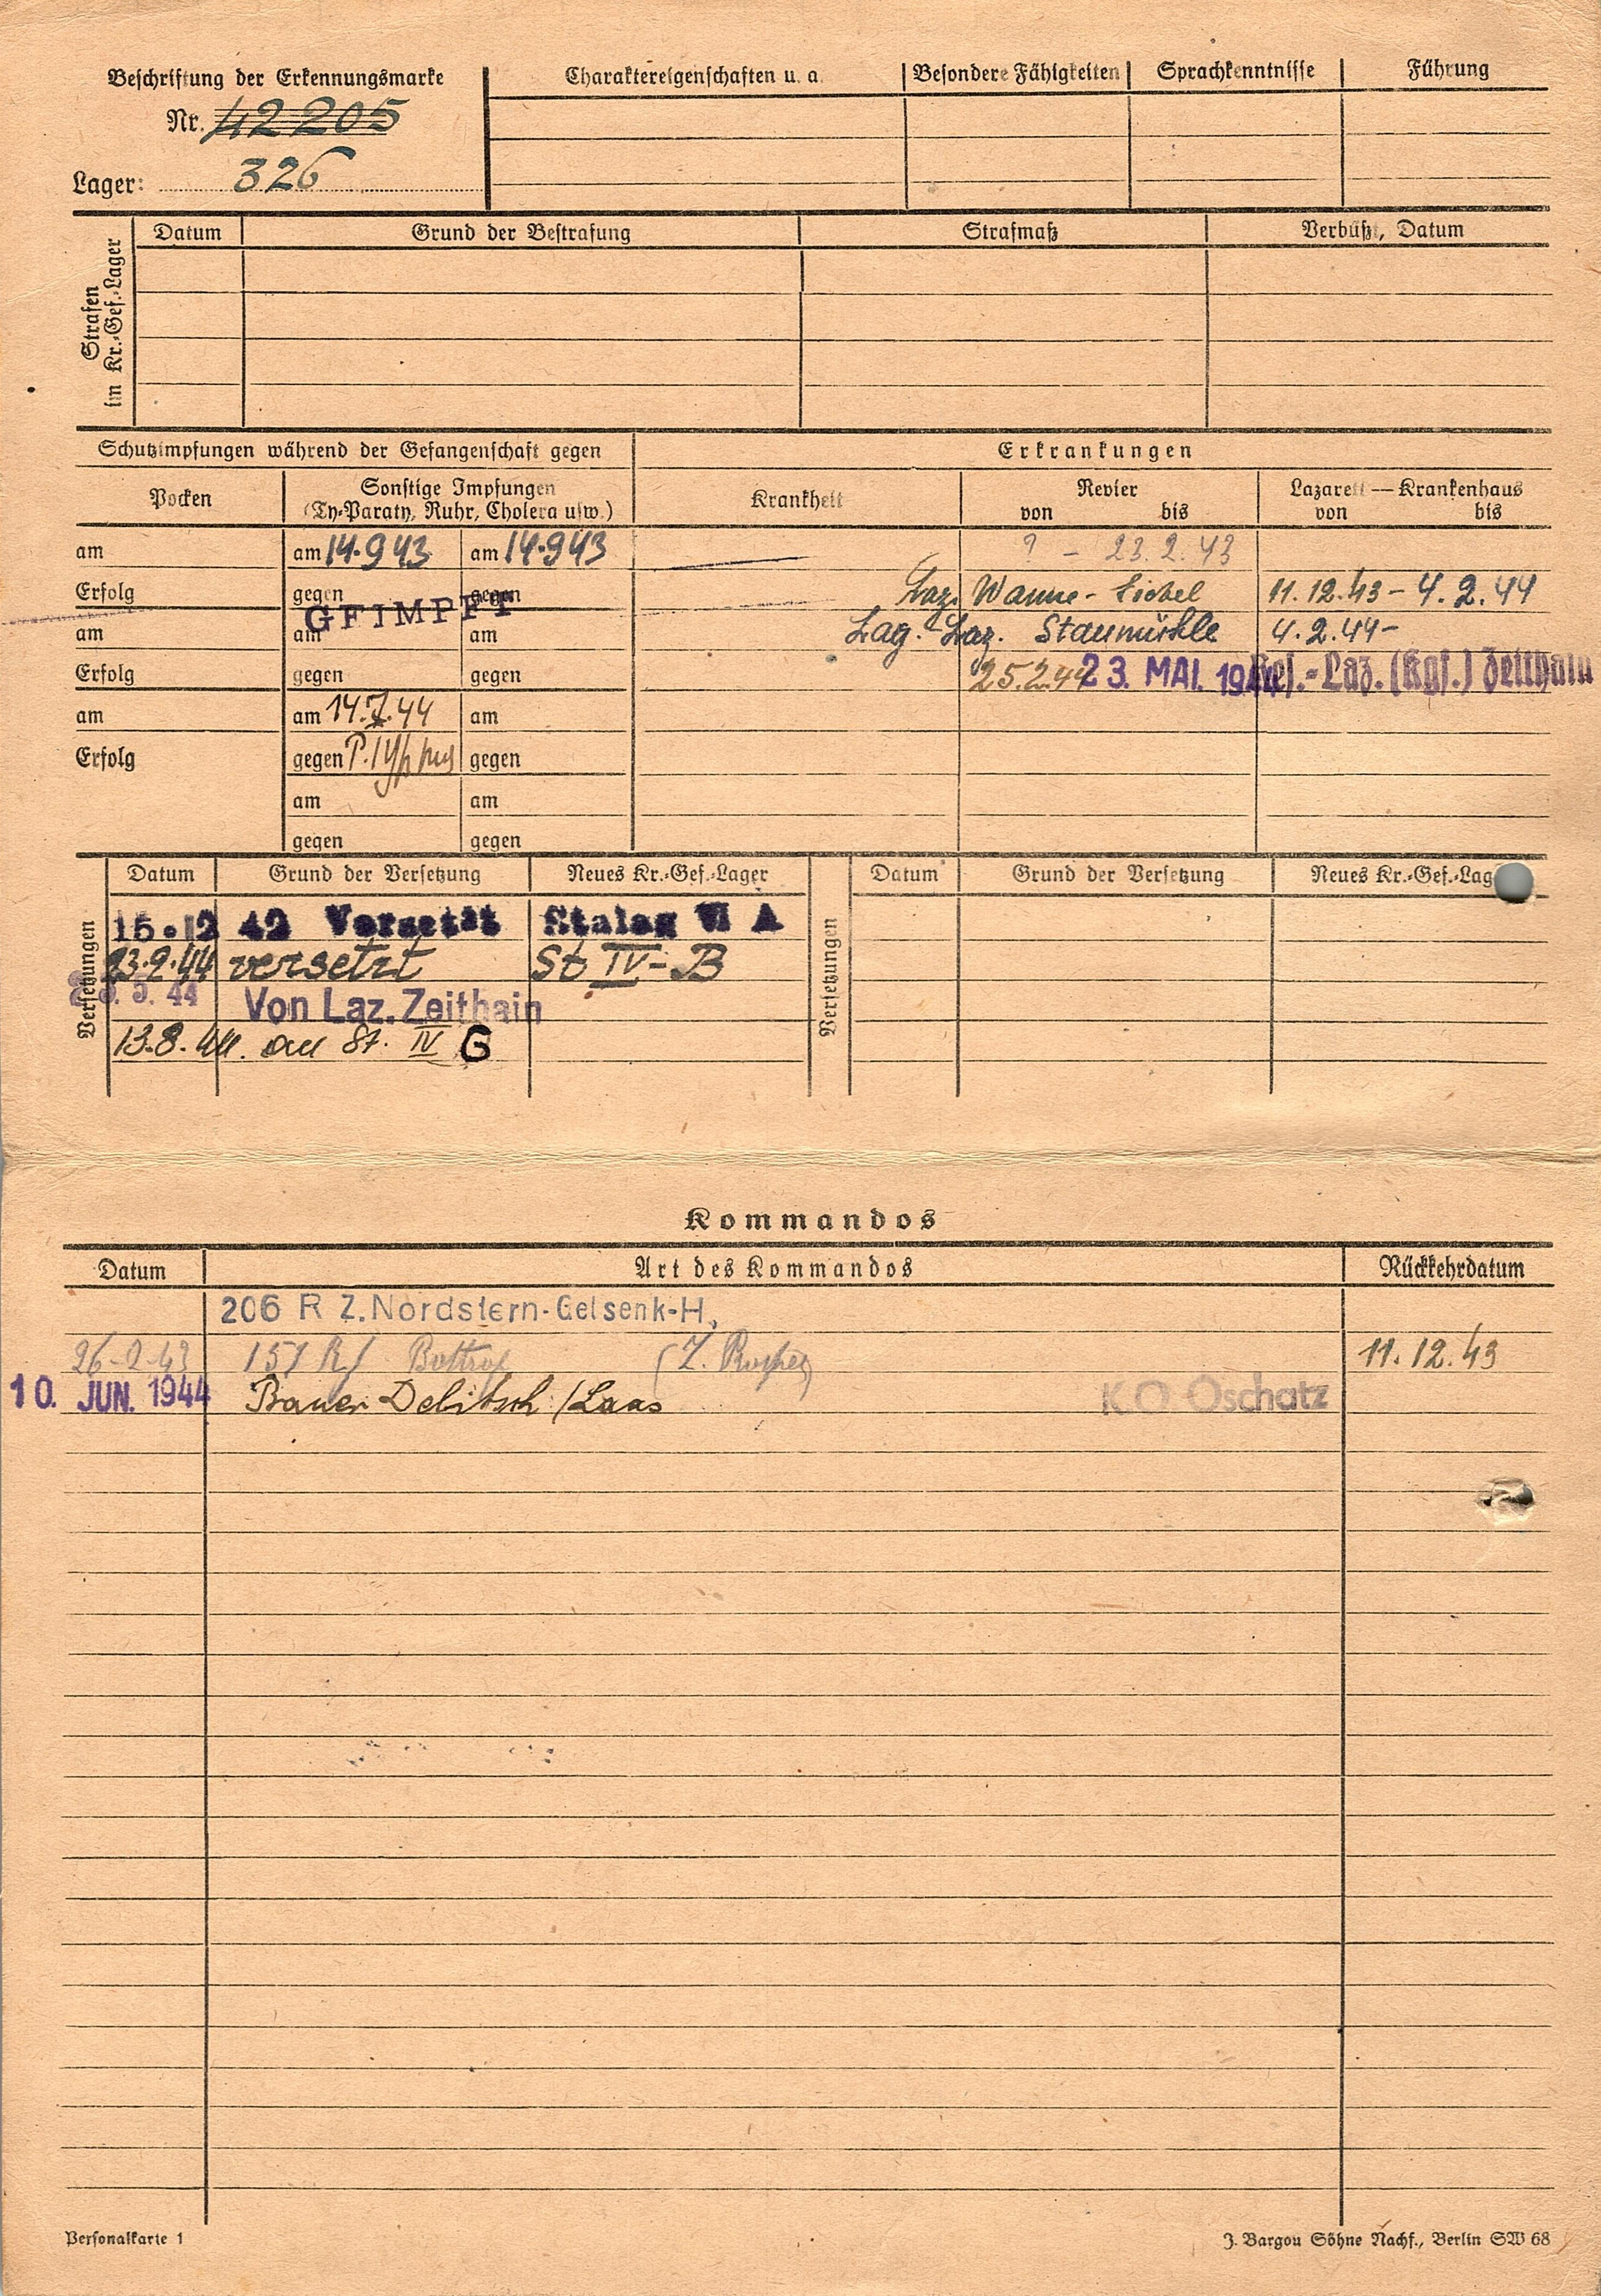 Beschriftung der Erkennungsmarke
Nr. 42205
Lager: 326
Charaktereigenschaften u. a. Besondere Fähigkeiten Sprachkenntnisse Führung
Strafen im Kr.-Gef.-Lager
Datum Grund der Bestrafung Strafmaß Verbüßt, Datum
Schutzimpfungen während der Gefangenschaft gegen Erkrankungen
Pocken Sonstige Impfungen (Ty-Paraty, Ruhr, Cholera usw.) Krankheit Revier von bis Lazarett — Krankenhaus von bis
am am 14.9 43 am 14.9 43 ? - 23.2.43
Erfolg gegen gegen Laz. Wanne-Eickel 11.12.43 - 4.2.44
GEIMPFT
am am am Lag. Laz. Staumühle 4.2.44 -
Erfolg gegen gegen 25.2.44 23. MAI. 1944 Res.-Laz. (Kgf.) Zeithain
am am 14.7.44 am
Erfolg gegen P. Typhus gegen
am am
gegen gegen
Versetzungen
Datum Grund der Versetzung Neues Kr.-Gef.-Lager
Versetzungen
Datum Grund der Versetzung Neues Kr.-Gef.-Lag
15.12 42 Versetzt Stalag VI A
23.2.44 versetzt St IV-B
5. 44 Von Laz. Zeithain
13.8.44. an St. IV G
Kommandos
Datum Art des Kommandos Rückkehrdatum
206 R Z. Nordstern-Gelsenk-H,
26-2-43 151 R/ Bottrop 11.12.43
10. JUN. 1944 Bauer Delitzsch / Laas KO Oschatz
Personalkarte 1 J. Bargou Söhne Nachf., Berlin SW 68